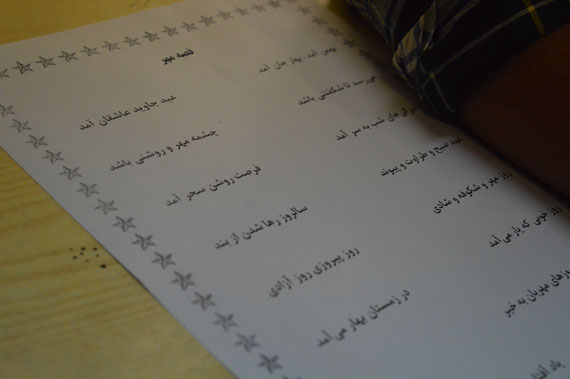 قصه مهر
بهمن آمد، بهار جان آمد
عید جاوید عاشقان آمد
می رسد تا شکفتنی باشد
چشمه مهر و روشنی باشد
های شب به سر آمد
فرصت روشن سحر آمد
عید صبح و طراوت و پیوند
سالروز رها شدن از بند
روز مهر و شکوفه و شادی
روز پیروزی روز آزادی
روز خوبی که یار می آمد
در زمستان بهار می آمد
مهربان به خیر
یاد